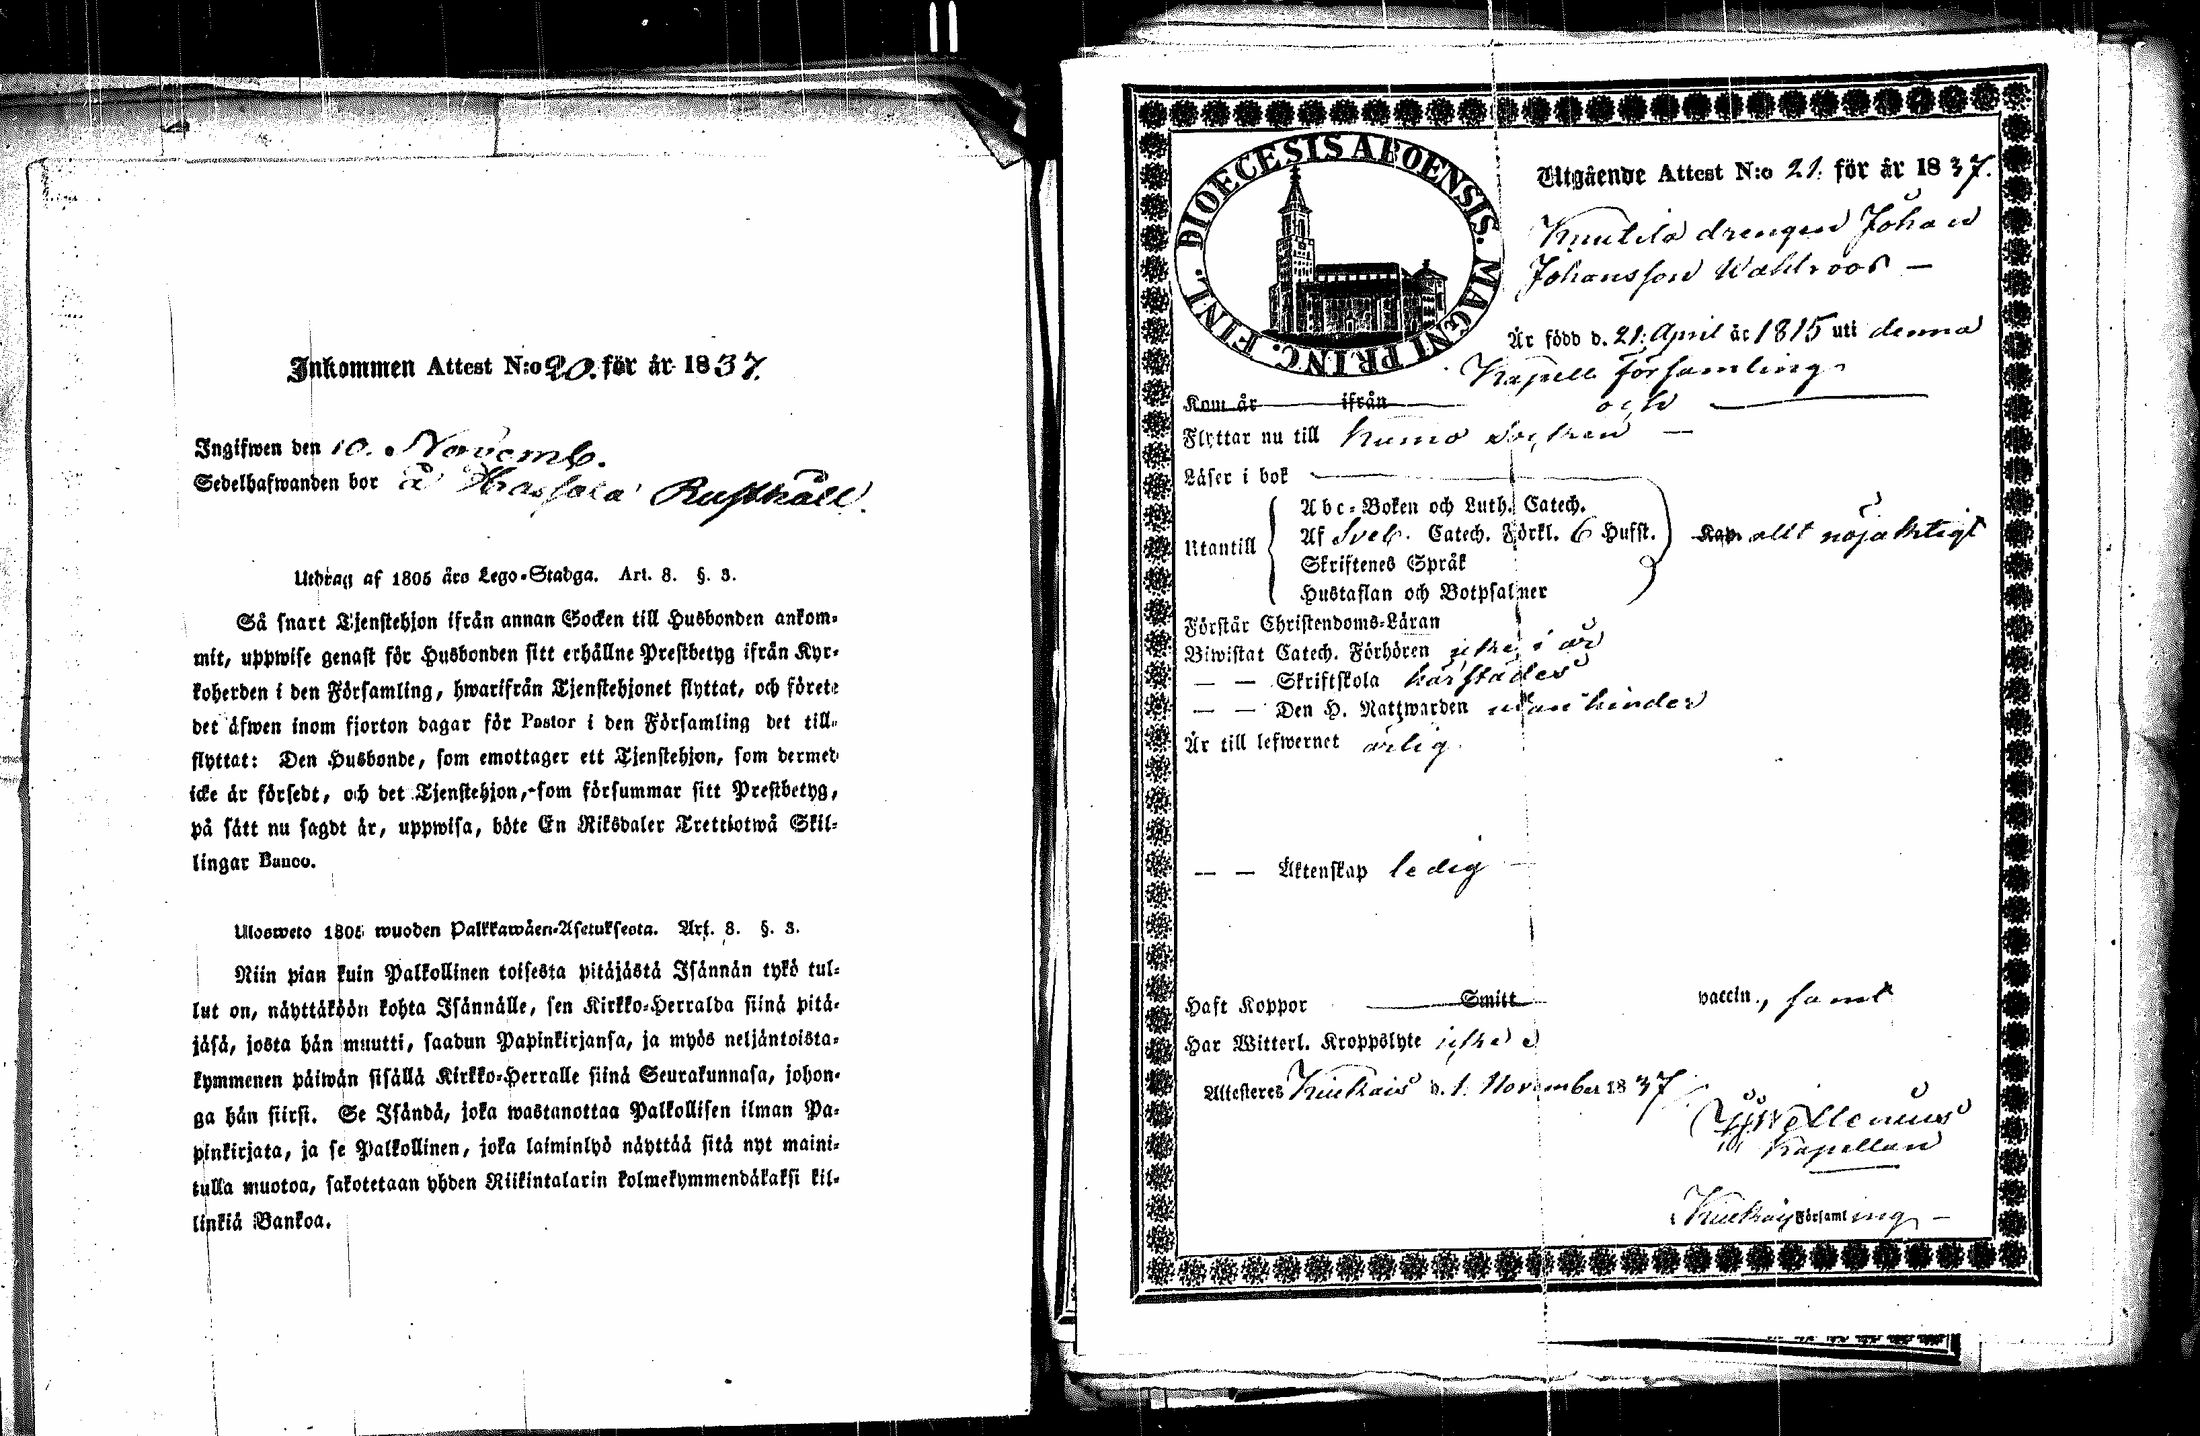 Inkommen Attest N:o 20. för år 1837.
Ingifwen den 10. Novemb.
Sedelhafwanden bor å Rusthåll.
Utdrag af 1805 års Lego-Stadga. Art. 8. §. 3.
Så snart Tjenstehjon ifrån annan Socken till Husbonden ankom-
mit, uppwise genast för Husbonden sitt erhållne Prestbetyg ifrån Kyr-
koherden i den Församling, hwarifrån Tjenstehjonet flyttat, och förete
det äfwen inom fjorton dagar för Pastor i den Församling det till-
flyttat: Den Husbonde, som emottager ett Tjenstehjon, som dermed
icke är försedt, och det Tjenstehjon, som försummar sitt Prestbetyg,
på sätt nu sagdt är, uppwisa, böte En Riksdaler Trettiotwå Skil-
lingar Banco.
Ulosweto 1805 wuoden Palkkawäen-Asetuksesta. Art. 8. §. 3.
Niin pian kuin Palkollinen toisesta pitäjästä Isännän tykö tul-
lut on, näyttäköön kohta Isännälle, sen Kirkko-Herralda siinä pitä-
jäsä, josta hän muutti, saadun Papinkirjansa, ja myös neljäntoista-
kymmenen päiwän sisällä Kirkko-Herralle siinä Seurakunnasa, johon-
ga hän siirsi. Se Isändä, joka wastanottaa Palkollisen ilman Pa-
pinkirjata, ja se Palkollinen, joka laiminlyö näyttää sitä nyt maini-
tulla muotoa, sakotetaan yhden Riikintalarin kolmekymmendäkaksi kil-
linkiä Bankoa.
DIOECESIS ABOENSIS. MAGNI PRINC. FINL.
Utgående Attest N:o 21. för år 1837.
Knutila drengen Johan
Johansson Wahlroos —
Är född d. 21. April år 1815 uti denna
Kapell församling
Kom år ifrån och
Flyttar nu till Kumo Socken —
Läser i bok
Abc-Boken och Luth. Catech.
Utantill Af Sveb. Catech. Förkl. 6 Hufst. Kap. allt nöjaktigt
Skriftenes Språk
Hustaflan och Botpsalmer
Förstår Christendoms-Läran
Biwistat Catech. Förhören icke i år
— — Skriftskola härstädes
— — Den H. Nattwarden utan hinder
Är till lefwernet ärlig.
— — Äktenskap ledig —
Haft Koppor Smitt vaccin., samt
Har Witterl. Kroppslyte icke
Attesteres Kiukais d. 1. November 1837
Wellenius
Kapellan
Kiukais Församling —